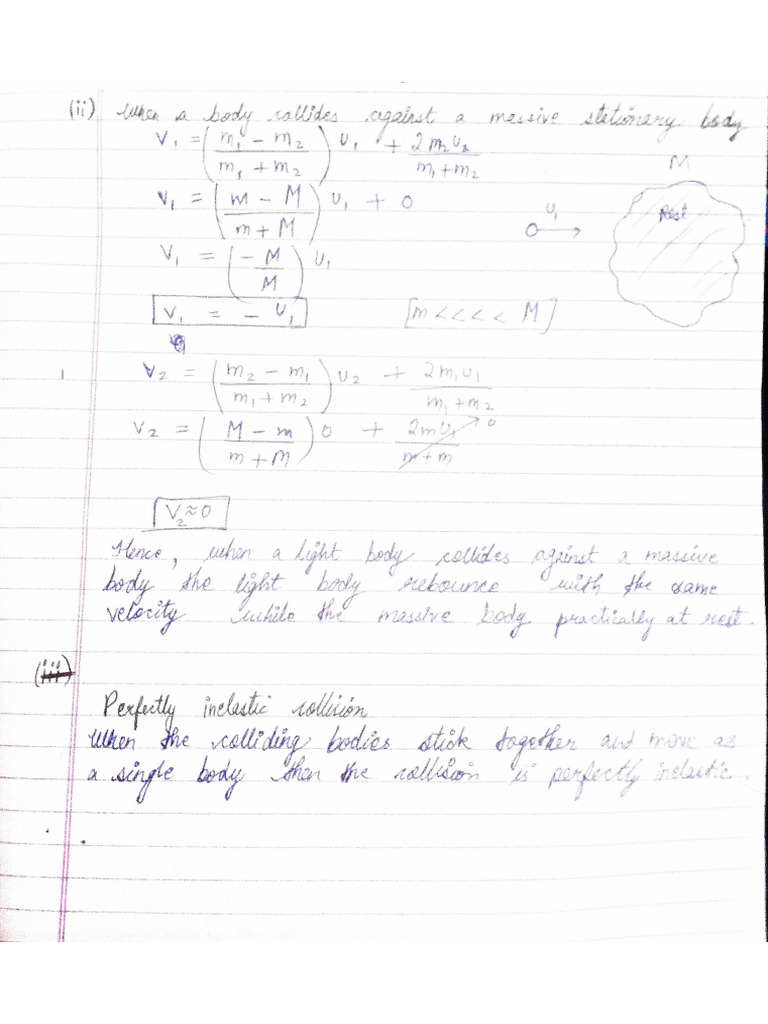 (ii) When a body collides against a massive stationary body
V₁ = (m₁ - m₂ / m₁ + m₂) U₁ + 2m₂U₂ / m₁ + m₂
M
V₁ = (m - M / m + M) U₁ + 0
U₁
Rest
V₁ = (-M / M) U₁
V₁ = - U₁ [m <<<< M]
V₂ = (m₂ - m₁ / m₁ + m₂) U₂ + 2m₁U₁ / m₁ + m₂
V₂ = (M - m / m + M) 0 + 2mU₁ / m + m → 0
V₂ ≈ 0
Hence, when a light body collides against a massive
body the light body rebounce with the same
velocity while the massive body practically at rest.
(iii)
Perfectly inelastic collision
When the colliding bodies stick together and move as
a single body then the collision is perfectly inelastic.